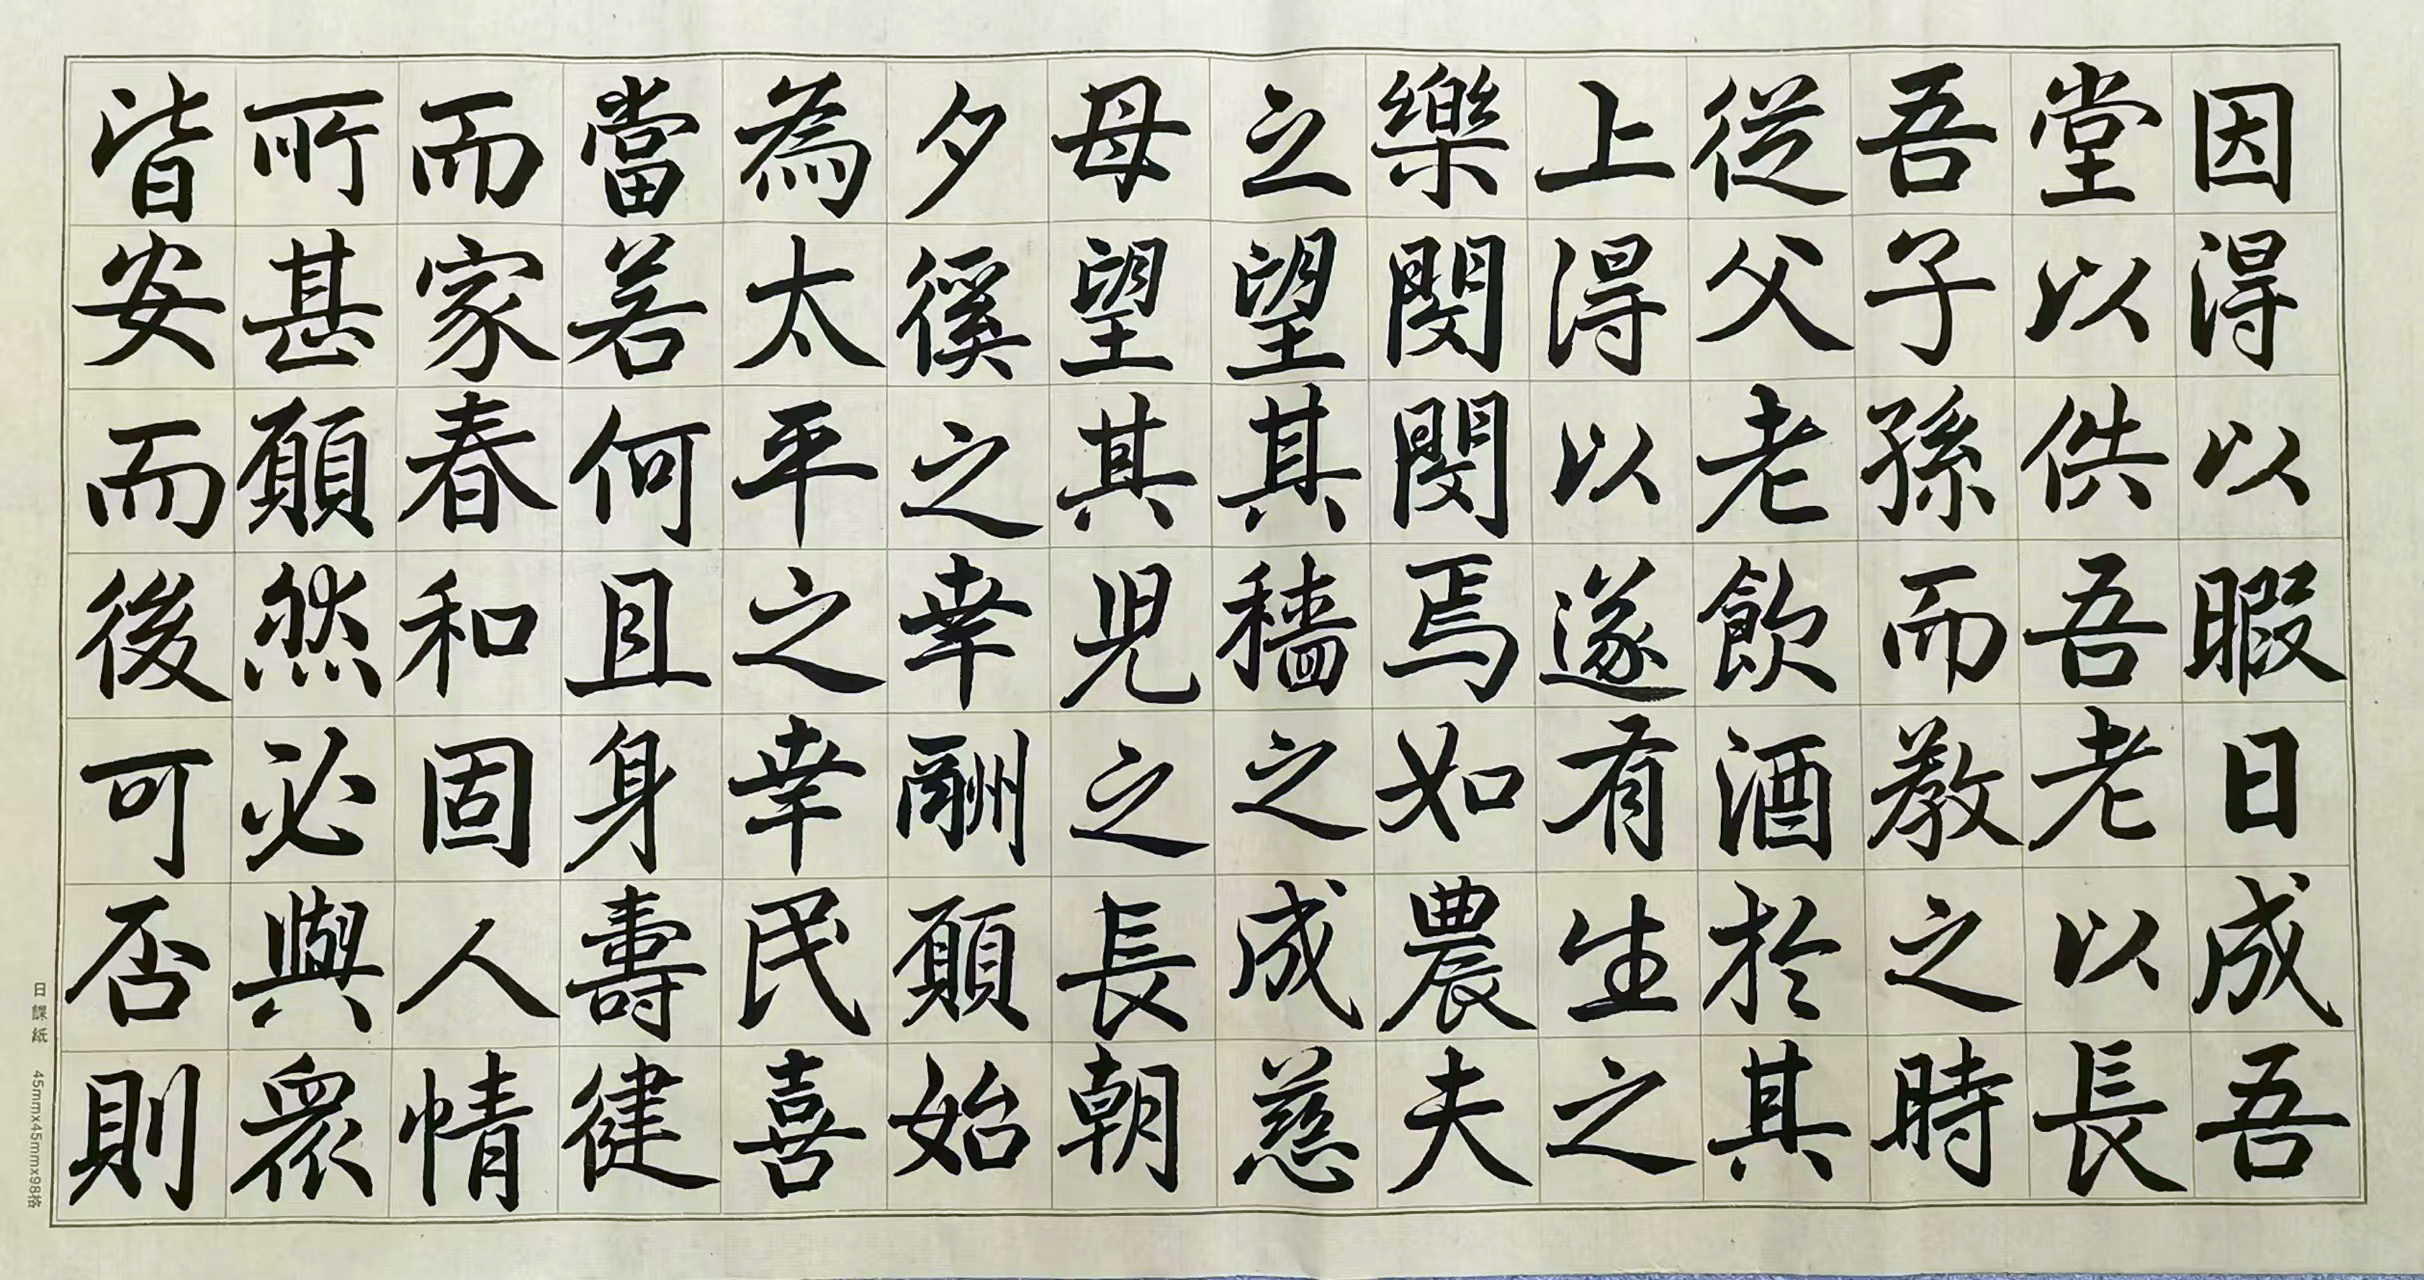 因得以暇日成吾
堂以供吾老以長
吾子孫而教之時
從父老飲酒於其
上得以遂有生之
樂閔閔焉如農夫
之望其穡之成慈
母望其児之長朝
夕徯之幸酬願始
為太平之幸民喜
當若何且身壽健
而家春和固人情
所甚願然必與衆
皆安而後可否則
日課紙 45mmx45mmx98格